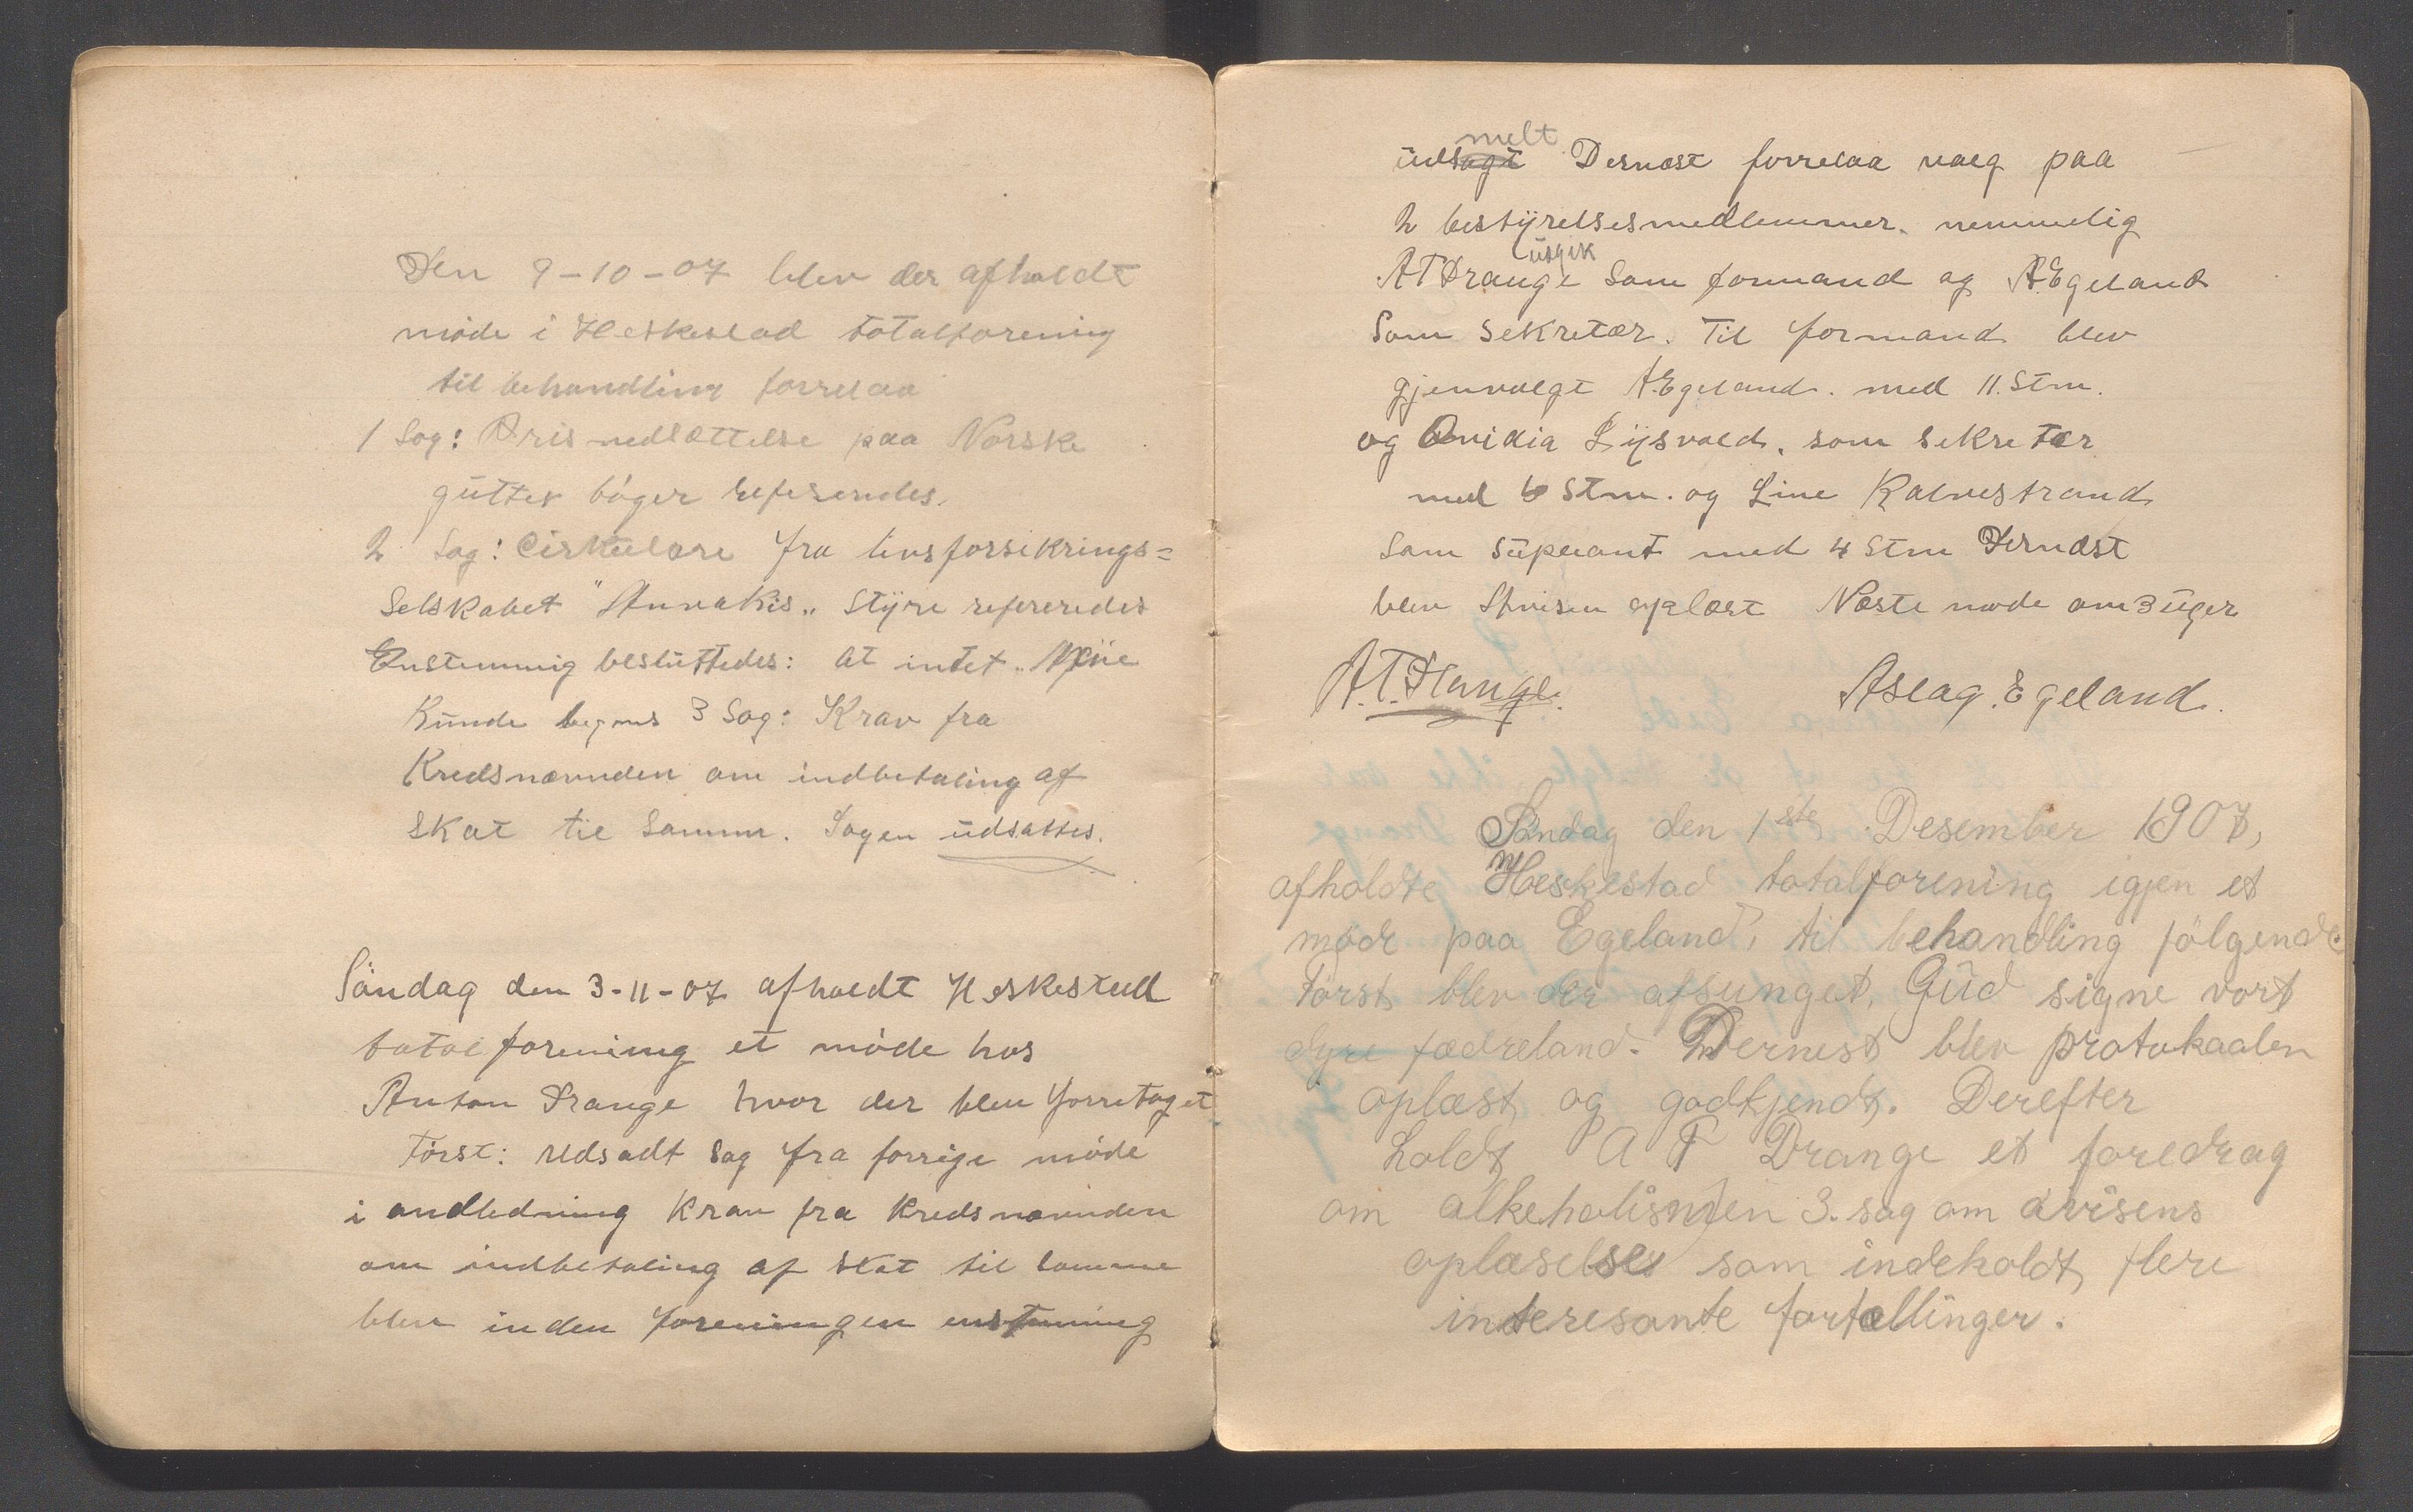 Den 9-10-07 blev der afholdt
møde i Heskestad totalforening
til behandling forrelaa
1 Sag: Prisnedsættelse paa Norske
gutter bøger refererdes.
2 Sag: Cirkulære fra livsforsikrings=
Selskabet "Anvakis„ Styre refereredes
Enstemmig besluttedes: At intet
Kunde 3 Sag: Krav fra
Kredsnævnden om indbetaling af
Skat til Samme. Sagen udsattes.
Søndag den 3-11-07 afholdt Heskestad
totalforening et møde hos
Anton Drange hvor der blev forretaget
Først: Udsadt Sag fra forrige møde
i andledning Krav fra Kredsnævnden
om indbetaling af skat til samme
blev inden foreningen enstemmig
melt
udsagt Dernæst forrelaa valg paa
2 bestyrelsesmedlemmer. nemmelig
udgik
AT Drange Som formand og A Egeland
Som Sekretær. Til formand blev
gjenvalgt A.Egeland. med 11. Stm.
og Ovidia Lysvold. som sekretær
med 6 Stm. og Line Kalvestrand
Som Supleant med 4 Stm Dernæst
blev Avisen oplæst Næste møde om 3 uger
A.T. Drange. Aslag. Egeland.
Søndag den 1ste Desember 1907,
afholdte Heskestad totalforening igjen et
møde paa Egeland, til behandling følgende
Først blev der afsunget, Gud signe vort
dyre fædreland. Dernest blev protokaalen
oplæst og godkjendt. Derefter
holdt A T Drange et foredrag
om alkeholismen 3. sag om avisens
oplæselse som indeholdt flere
interesante fortællinger.